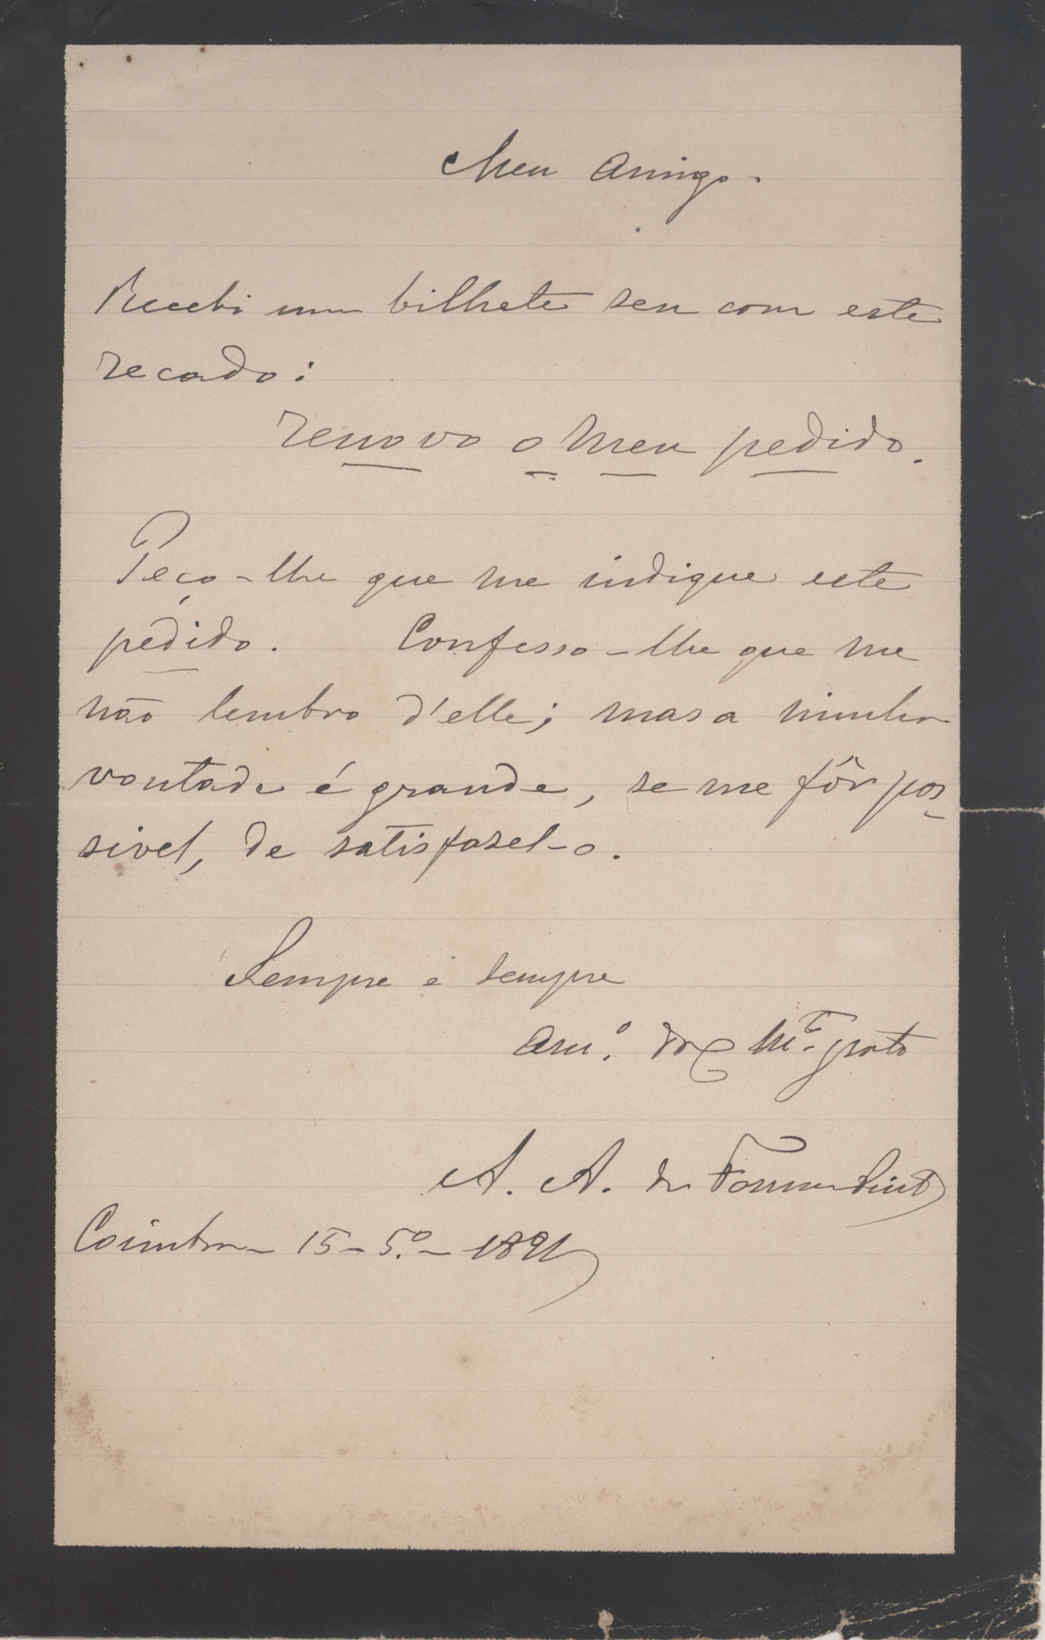 Meu amigo.
Recebi um bilhete seu com este
recado:
renovo o meu pedido.
Peço-lhe que me indique este
pedido. Confesso-lhe que me
não lembro d'elle; mas a minha
vontade é grande, se me fôr pos-
sivel, de satisfazel-o.
Sempre e sempre
am.º m.to grato
A. A. da Fonseca Pinto
Coimbra - 15 - 5.º - 1891